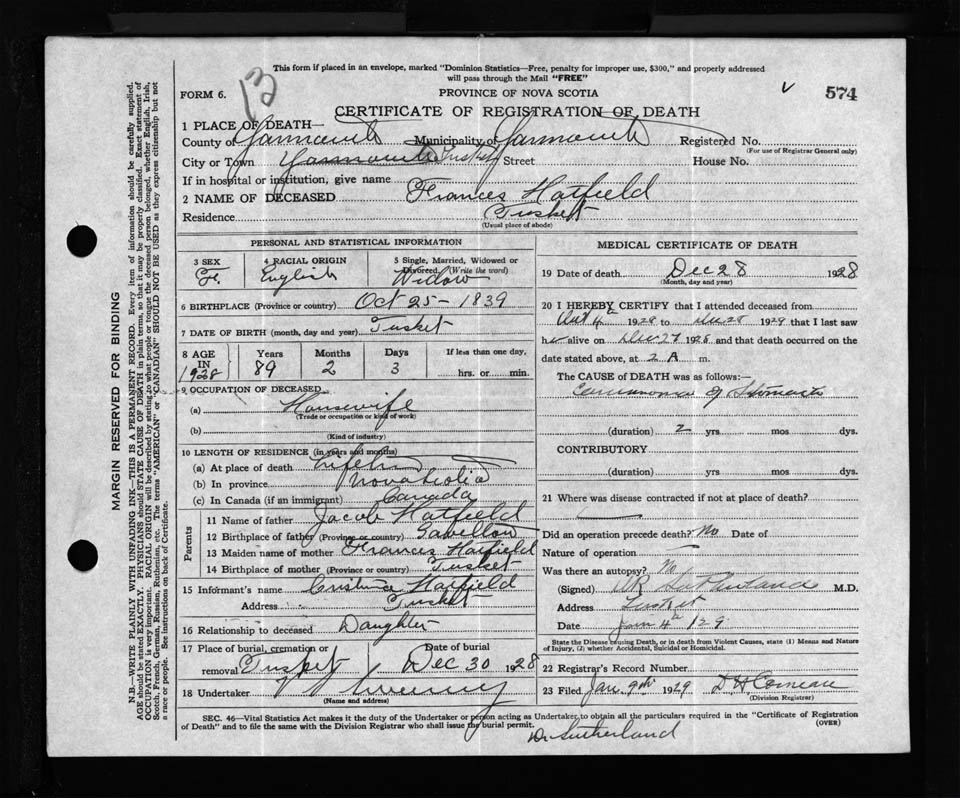 This form if placed in an envelope, marked "Dominion Statistics—Free, penalty for improper use, $300," and properly addressed
will pass through the Mail "FREE"
FORM 6.
13
PROVINCE OF NOVA SCOTIA
574
CERTIFICATE OF REGISTRATION OF DEATH
1 PLACE OF DEATH—
County of Yarmouth Municipality of Yarmouth Registered No.
(For use of Registrar General only)
City or Town Yarmouth Tusket Street House No.
If in hospital or institution, give name
2 NAME OF DECEASED Frances Hatfield
Residence Tusket
(Usual place of abode)
PERSONAL AND STATISTICAL INFORMATION
3 SEX 4 RACIAL ORIGIN 5 Single, Married, Widowed or
Divorced (Write the word)
Fe. English Widow
6 BIRTHPLACE (Province or country) Oct 25 - 1839
7 DATE OF BIRTH (month, day and year) Tusket
8 AGE IN 1928 Years Months Days If less than one day,
89 2 3 hrs. or min.
9 OCCUPATION OF DECEASED
(a) Housewife
(Trade or occupation or kind of work)
(b)
(Kind of industry)
10 LENGTH OF RESIDENCE (in years and months)
(a) At place of death
(b) In province Nova Scotia
(c) In Canada (if an immigrant) Canada
Parents
11 Name of father Jacob Hatfield
12 Birthplace of father (Province or country)
13 Maiden name of mother Frances Hatfield
14 Birthplace of mother (Province or country) Tusket
15 Informant's name Hatfield
Address Tusket
16 Relationship to deceased Daughter
17 Place of burial, cremation or Date of burial
removal Tusket Dec 30 1928
18 Undertaker Sweeney
(Name and address)
MEDICAL CERTIFICATE OF DEATH
19 Date of death Dec 28 1928
(Month, day and year)
20 I HEREBY CERTIFY that I attended deceased from
1928 to 1929 that I last saw
her alive on Dec 27 1928 and that death occurred on the
date stated above, at 2 A m.
The CAUSE OF DEATH was as follows:—
Carcinoma of Stomach
(duration) 2 yrs mos dys.
CONTRIBUTORY
(duration) yrs mos dys.
21 Where was disease contracted if not at place of death?
Did an operation precede death? No Date of
Nature of operation
Was there an autopsy? No
(Signed) M.D.
Address Tusket
Date Jan 4th 129
State the Disease Causing Death, or in death from Violent Causes, state (1) Means and Nature
of Injury, (2) whether Accidental, Suicidal or Homicidal.
22 Registrar's Record Number
23 Filed Jan 9th 1929 D H Comeau
(Division Registrar)
SEC. 46—Vital Statistics Act makes it the duty of the Undertaker or person acting as Undertaker to obtain all the particulars required in the "Certificate of Registration
of Death" and to file the same with the Division Registrar who shall issue the burial permit. (OVER)
Dr Sutherland
MARGIN RESERVED FOR BINDING
N.B.—WRITE PLAINLY WITH UNFADING INK—THIS IS A PERMANENT RECORD. Every item of information should be carefully supplied.
AGE should be stated EXACTLY. PHYSICIANS should STATE CAUSE OF DEATH in plain terms, so that it may be properly classified. Exact statement of
OCCUPATION is very important. RACIAL ORIGIN will be described by stating to what people or tongue the deceased person belonged, whether English, Irish,
Scotch, French, German, Russian, Ruthenian, etc. The terms "AMERICAN" or "CANADIAN" SHOULD NOT BE USED as they express citizenship but not
a race or people. See instructions on back of Certificate.